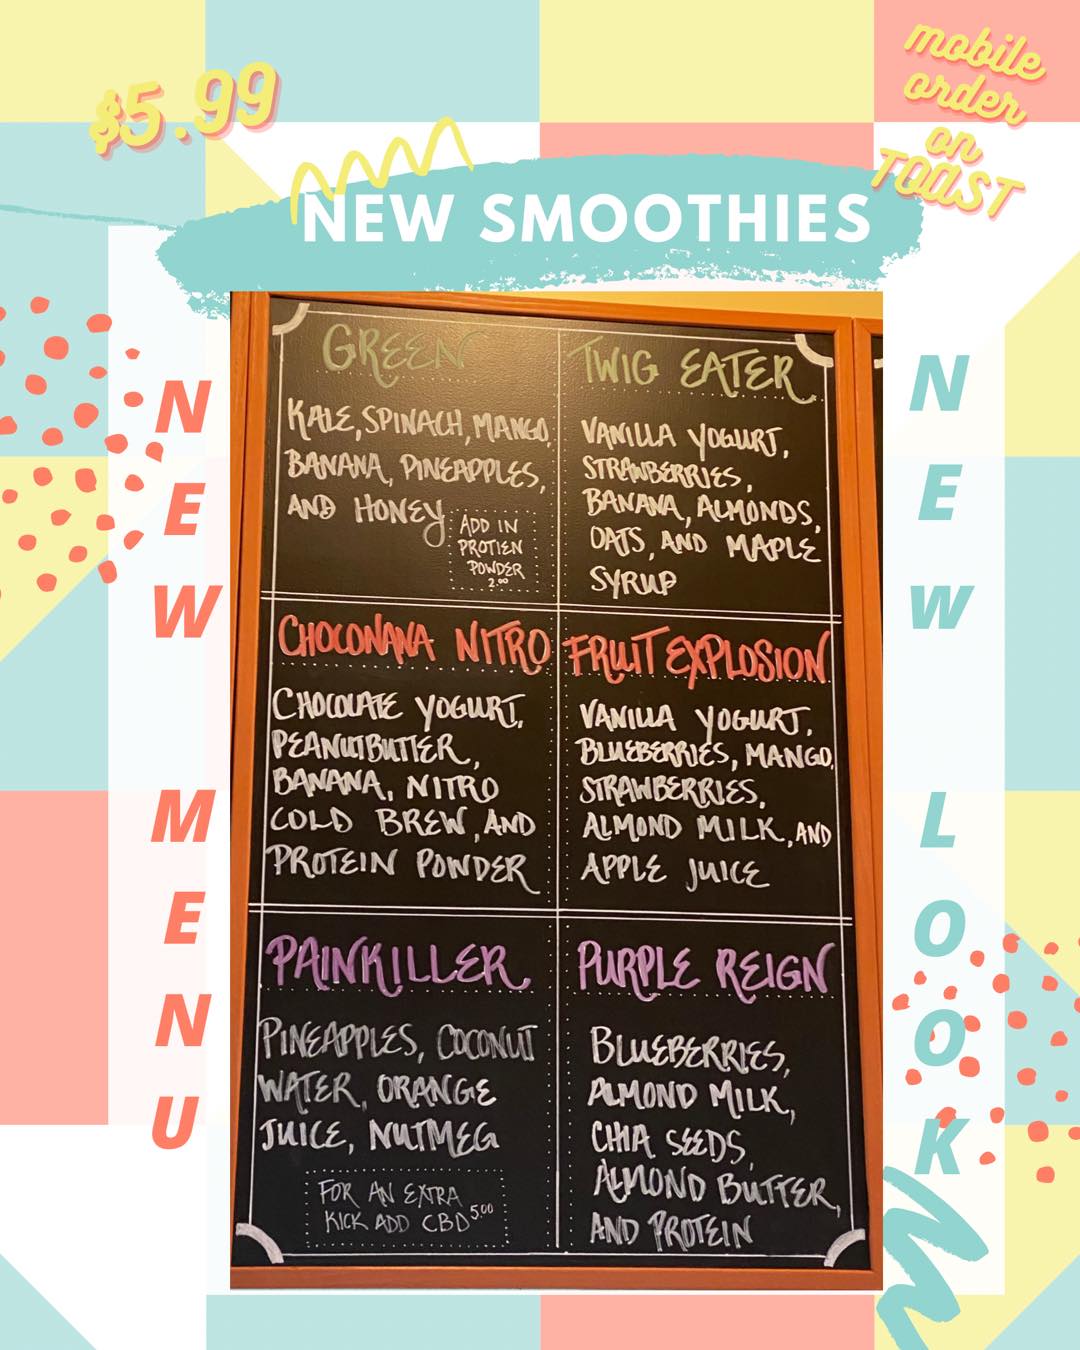 $5.99
mobile
order
on
TOAST
NEW SMOOTHIES
NEW MENU
NEW LOOK
GREEN
KALE, SPINACH, MANGO,
BANANA, PINEAPPLES,
AND HONEY
ADD IN
PROTIEN
POWDER
2.00
TWIG EATER
VANILLA YOGURT,
STRAWBERRIES,
BANANA, ALMONDS,
OATS, AND MAPLE
SYRUP
CHOCONANA NITRO
CHOCOLATE YOGURT,
PEANUTBUTTER,
BANANA, NITRO
COLD BREW, AND
PROTEIN POWDER
FRUIT EXPLOSION
VANILLA YOGURT,
BLUEBERRIES, MANGO,
STRAWBERRIES,
ALMOND MILK, AND
APPLE JUICE
PAINKILLER
PINEAPPLES, COCONUT
WATER, ORANGE
JUICE, NUTMEG
FOR AN EXTRA
KICK ADD CBD 5.00
PURPLE REIGN
BLUEBERRIES,
ALMOND MILK,
CHIA SEEDS,
ALMOND BUTTER,
AND PROTEIN